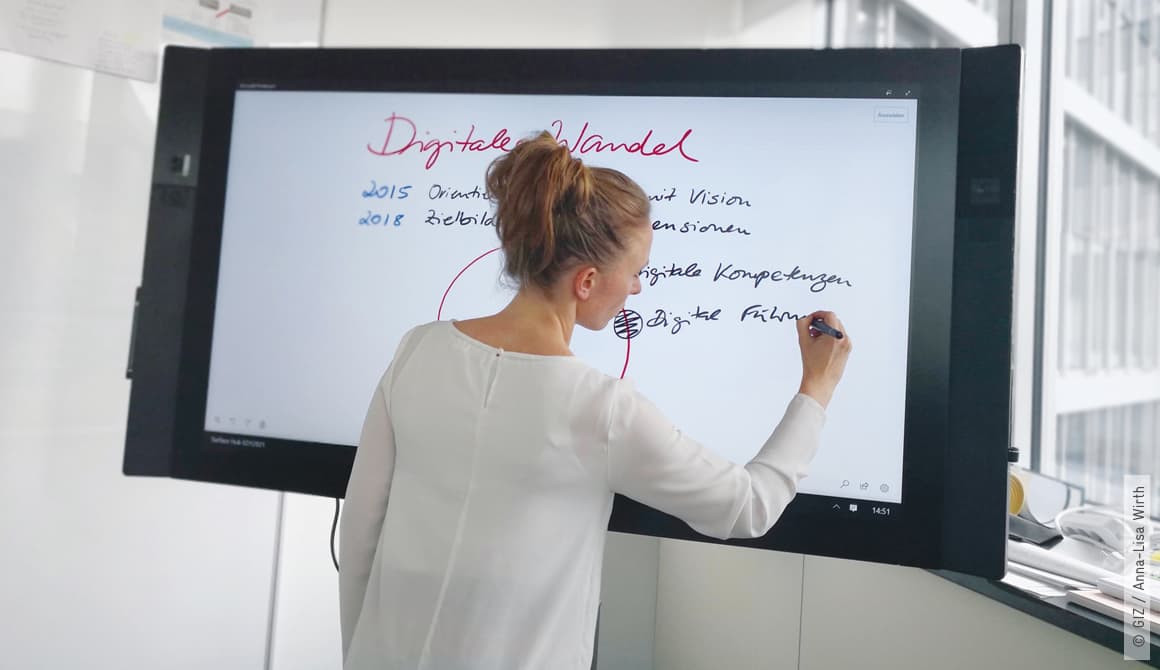 Digitale Wandel
2015 Orientie mit Vision
2018 Zielbild ensionen
Digitale Kompetenzen
Digital Führun
Surface Hub
14:51
© GIZ / Anna-Lisa Wirth